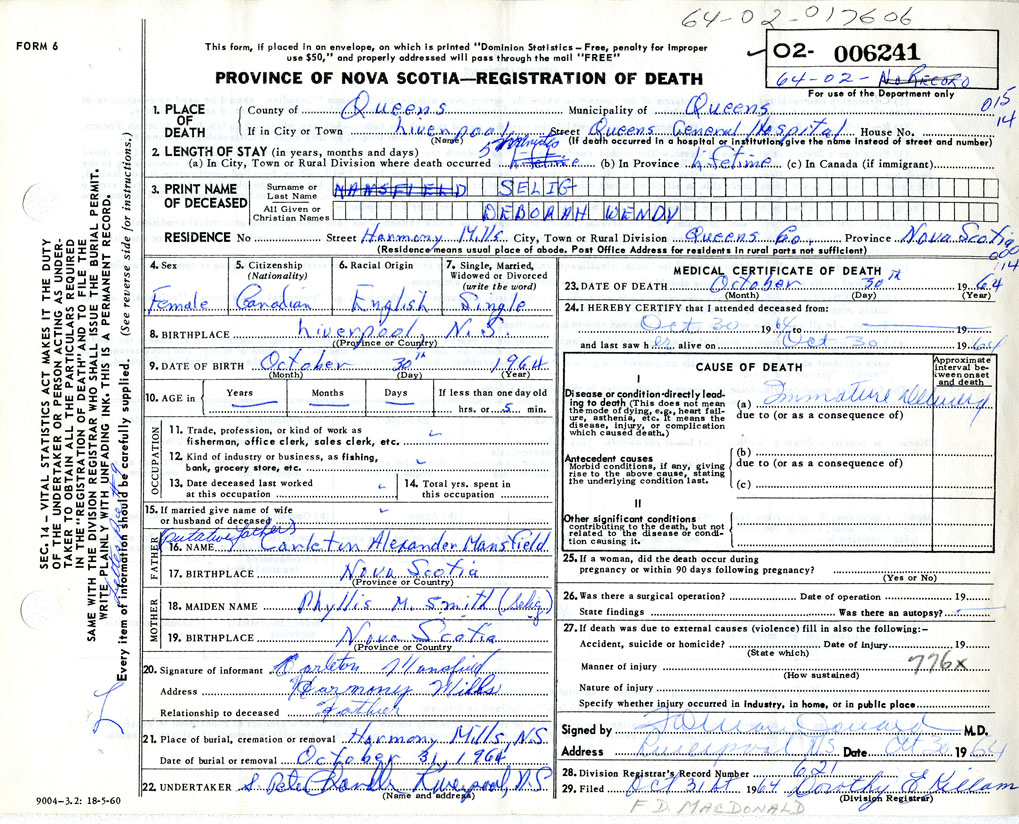 64-02-017606
FORM 6
This form, if placed in an envelope, on which is printed "Dominion Statistics – Free, penalty for improper
use $50," and properly addressed will pass through the mail "FREE"
✓ 02- 006241
64-02- No RECORD
For use of the Department only
PROVINCE OF NOVA SCOTIA—REGISTRATION OF DEATH
015
14
1. PLACE OF DEATH
County of Queens Municipality of Queens
If in City or Town Liverpool Street Queens General Hospital House No.
(Name) (If death occurred in a hospital or institution, give the name instead of street and number)
2. LENGTH OF STAY (in years, months and days) 5 minutes
(a) In City, Town or Rural Division where death occurred lifetime (b) In Province lifetime (c) In Canada (if immigrant)
3. PRINT NAME OF DECEASED
Surname or Last Name MANSFIELD SELIG
All Given or Christian Names DEBORAH WENDY
RESIDENCE No Street Harmony Mills City, Town or Rural Division Queens Co., Province Nova Scotia
(Residence means usual place of abode. Post Office Address for residents in rural parts not sufficient)
000
14
4. Sex 5. Citizenship (Nationality) 6. Racial Origin 7. Single, Married, Widowed or Divorced (write the word)
Female Canadian English Single
8. BIRTHPLACE Liverpool, N.S.
(Province or Country)
9. DATE OF BIRTH October 30th 1964
(Month) (Day) (Year)
10. AGE in Years Months Days If less than one day old
hrs. or 5 min.
OCCUPATION
11. Trade, profession, or kind of work as
fisherman, office clerk, sales clerk, etc.
12. Kind of industry or business, as fishing,
bank, grocery store, etc.
13. Date deceased last worked
at this occupation
14. Total yrs. spent in
this occupation
15. If married give name of wife
or husband of deceased
(Putative father)
FATHER
16. NAME Carleton Alexander Mansfield
17. BIRTHPLACE Nova Scotia
(Province or Country)
MOTHER
18. MAIDEN NAME Phyllis M. Smith (Selig)
19. BIRTHPLACE Nova Scotia
(Province or Country)
20. Signature of informant Carleton Mansfield
Address Harmony Mills
Relationship to deceased Father
21. Place of burial, cremation or removal Harmony Mills, N.S.
Date of burial or removal October 31, 1964
22. UNDERTAKER S. Peter Liverpool, N.S.
(Name and address)
9004—3.2: 18-5-60
MEDICAL CERTIFICATE OF DEATH
23. DATE OF DEATH October 30th 1964
(Month) (Day) (Year)
24. I HEREBY CERTIFY that I attended deceased from:
Oct 30 1964 to 19
and last saw her alive on Oct 30 1964
CAUSE OF DEATH
Approximate interval between onset and death
I
Disease or condition directly leading to death (This does not mean the mode of dying, e.g., heart failure, asthenia, etc. It means the disease, injury, or complication which caused death.)
(a) Immature Delivery
due to (or as a consequence of)
Antecedent causes
Morbid conditions, if any, giving rise to the above cause, stating the underlying condition last.
(b)
due to (or as a consequence of)
(c)
II
Other significant conditions
contributing to the death, but not related to the disease or condition causing it.
25. If a woman, did the death occur during
pregnancy or within 90 days following pregnancy?
(Yes or No)
26. Was there a surgical operation? Date of operation 19
State findings Was there an autopsy?
27. If death was due to external causes (violence) fill in also the following:–
Accident, suicide or homicide? Date of injury 19
(State which)
776x
Manner of injury
(How sustained)
Nature of injury
Specify whether injury occurred in industry, in home, or in public place
Signed by M.D.
Address Liverpool NS Date Oct 30 1964
28. Division Registrar's Record Number 621
29. Filed Oct 31st 1964 Dorothy E Killam
(Division Registrar)
F. D. MACDONALD
SEC. 14 – VITAL STATISTICS ACT MAKES IT THE DUTY
OF THE UNDERTAKER OR PERSON ACTING AS UNDER-
TAKER TO OBTAIN ALL THE PARTICULARS REQUIRED
IN THE "REGISTRATION OF DEATH" AND TO FILE THE
SAME WITH THE DIVISION REGISTRAR WHO SHALL ISSUE THE BURIAL PERMIT.
WRITE PLAINLY WITH UNFADING INK. THIS IS A PERMANENT RECORD.
Every item of information should be carefully supplied. (See reverse side for instructions.)